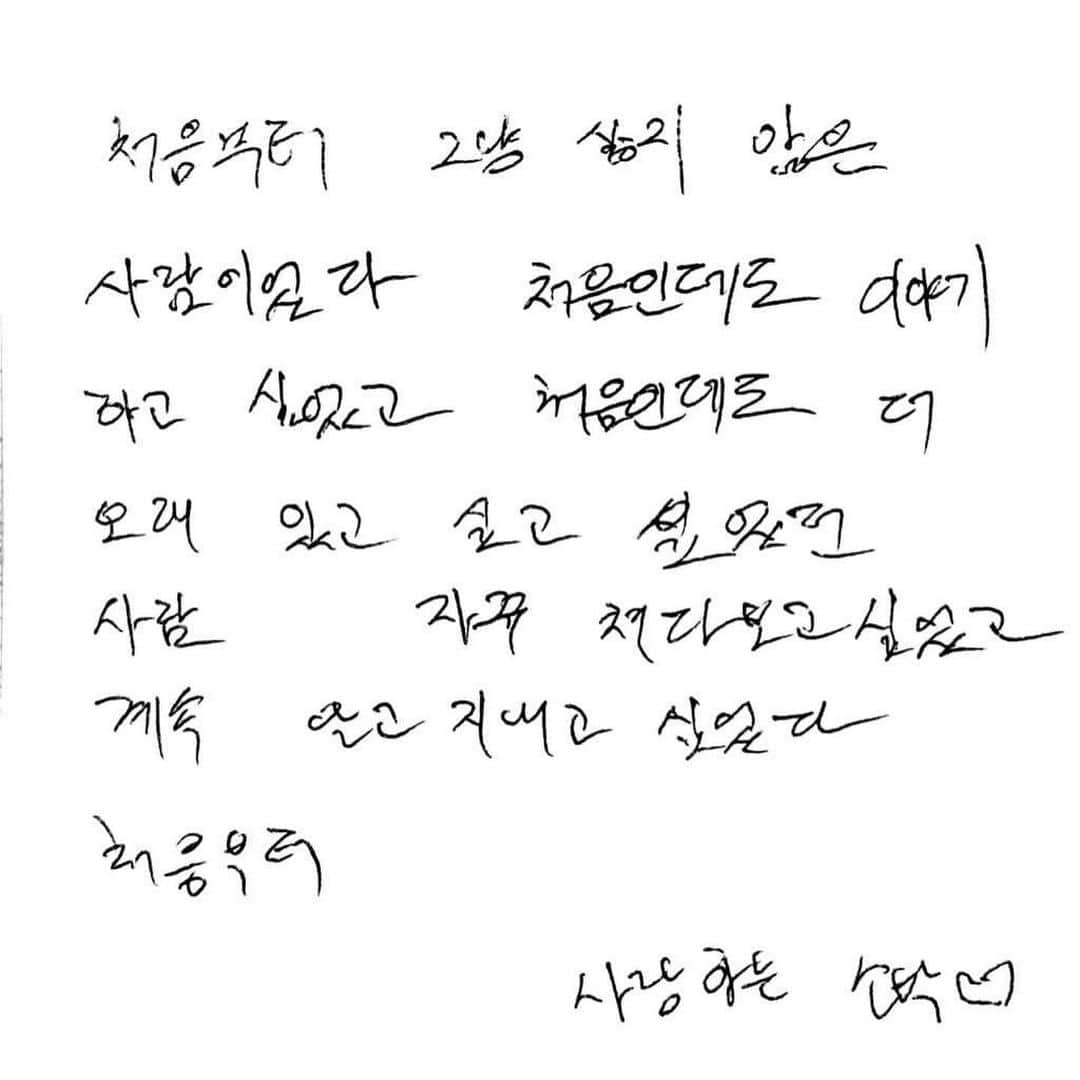 처음부터 그냥 싫지 않은
사람이었다 처음인데도 이야기
하고 싶었고 처음인데도 더
오래 있고 싶고 싶었던
사람 자꾸 쳐다보고싶었고
계속 알고 지내고 싶었다
처음부터
사랑하는